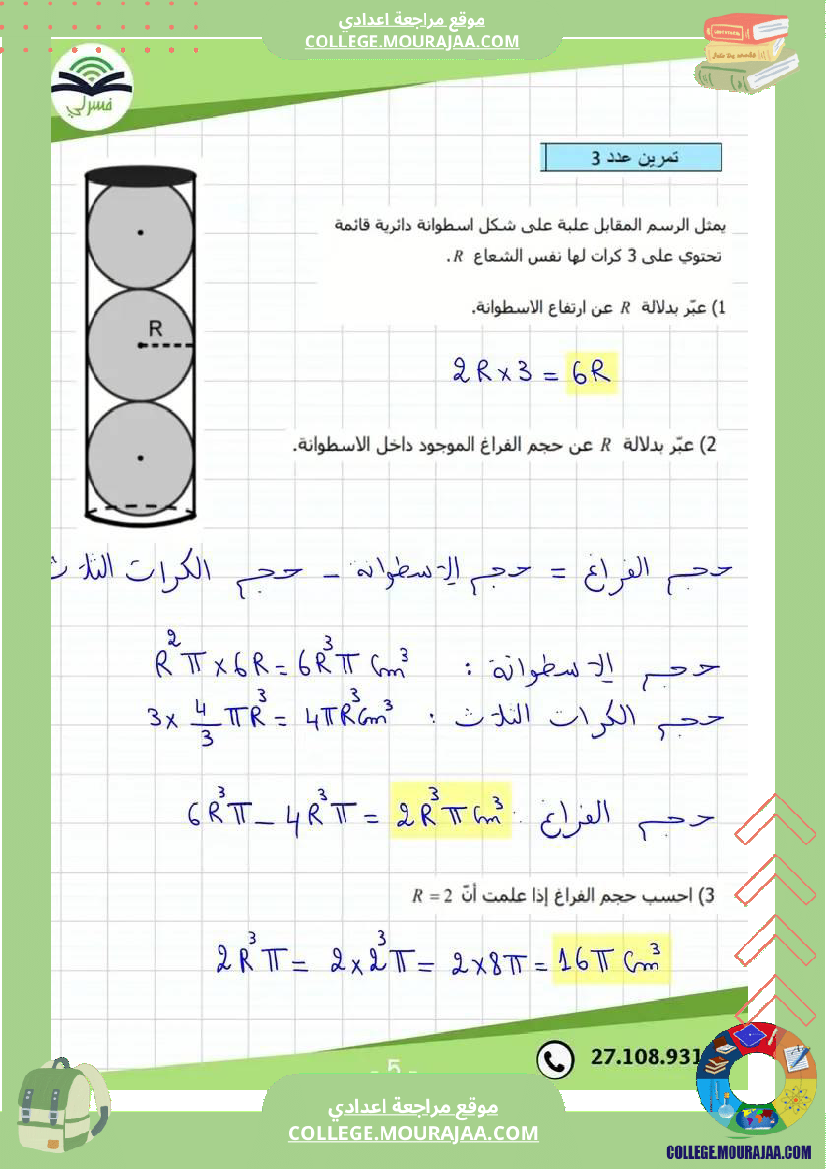 موقع مراجعة اعدادي
COLLEGE.MOURAJAA.COM
فسرلي
تمرين عدد 3
يمثل الرسم المقابل علبة على شكل اسطوانة دائرية قائمة
تحتوي على 3 كرات لها نفس الشعاع R .
1) عبّر بدلالة R عن ارتفاع الاسطوانة.
R
2R x 3 = 6R
2) عبّر بدلالة R عن حجم الفراغ الموجود داخل الاسطوانة.
حجم الفراغ = حجم الاسطوانة - حجم الكرات الثلاث
حجم الاسطوانة : R²π x 6R = 6R³π Cm³
حجم الكرات الثلاث : 3 x 4/3 πR³ = 4πR³Cm³
حجم الفراغ : 6R³π - 4R³π = 2R³π Cm³
3) احسب حجم الفراغ إذا علمت أنّ R = 2
2R³π = 2 x 2³π = 2 x 8π = 16π Cm³
27.108.931
- 5 -
موقع مراجعة اعدادي
COLLEGE.MOURAJAA.COM
COLLEGE.MOURAJAA.COM